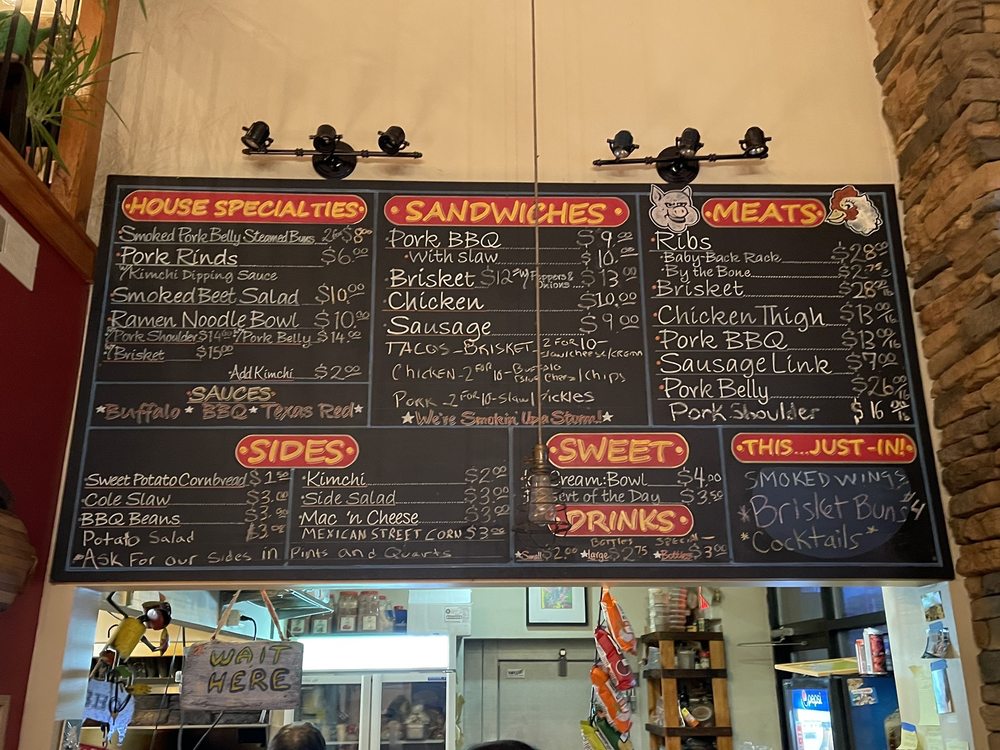 HOUSE SPECIALTIES
Smoked Pork Belly Steamed Buns 2 for $8.00
Pork Rinds $6.00
w/Kimchi Dipping Sauce
Smoked Beet Salad $10.00
Ramen Noodle Bowl $10.50
w/Pork Shoulder $14.00 w/Pork Belly $14.00
w/Brisket $15.00
Add Kimchi $2.00
SAUCES
★Buffalo★ BBQ★ Texas Red★
SANDWICHES
Pork BBQ $9.00
With slaw $10.00
Brisket $12.00 w/ Peppers & Onions $13.00
Chicken $10.00
Sausage $9.00
TACOS - BRISKET - 2 FOR 10 -
CHICKEN - 2 FOR 10 - Buffalo
PORK - 2 FOR 10 - Slaw/Pickles
★We're Smokin' Up a Storm!★
MEATS
Ribs
Baby-Back Rack $28.00
By the Bone $2.75
Brisket $28 lb
Chicken Thigh $13 lb
Pork BBQ $13 lb
Sausage Link $7.00
Pork Belly $26.00 lb
Pork Shoulder $16 lb
SIDES
Sweet Potato Cornbread $1.50
Cole Slaw $3.00
BBQ Beans $3.00
Potato Salad $3.00
Kimchi $2.00
Side Salad $3.00
Mac 'n Cheese $3.00
MEXICAN STREET CORN $3.50
★Ask For our Sides in Pints and Quarts
SWEET
Cream: Bowl $4.00
of the Day $3.50
DRINKS
★Small $2.00 ★large $2.75 ★Bottles $3.00
THIS...JUST-IN!
SMOKED WINGS
*Brisket Buns $4
*Cocktails*
WAIT
HERE
pepsi